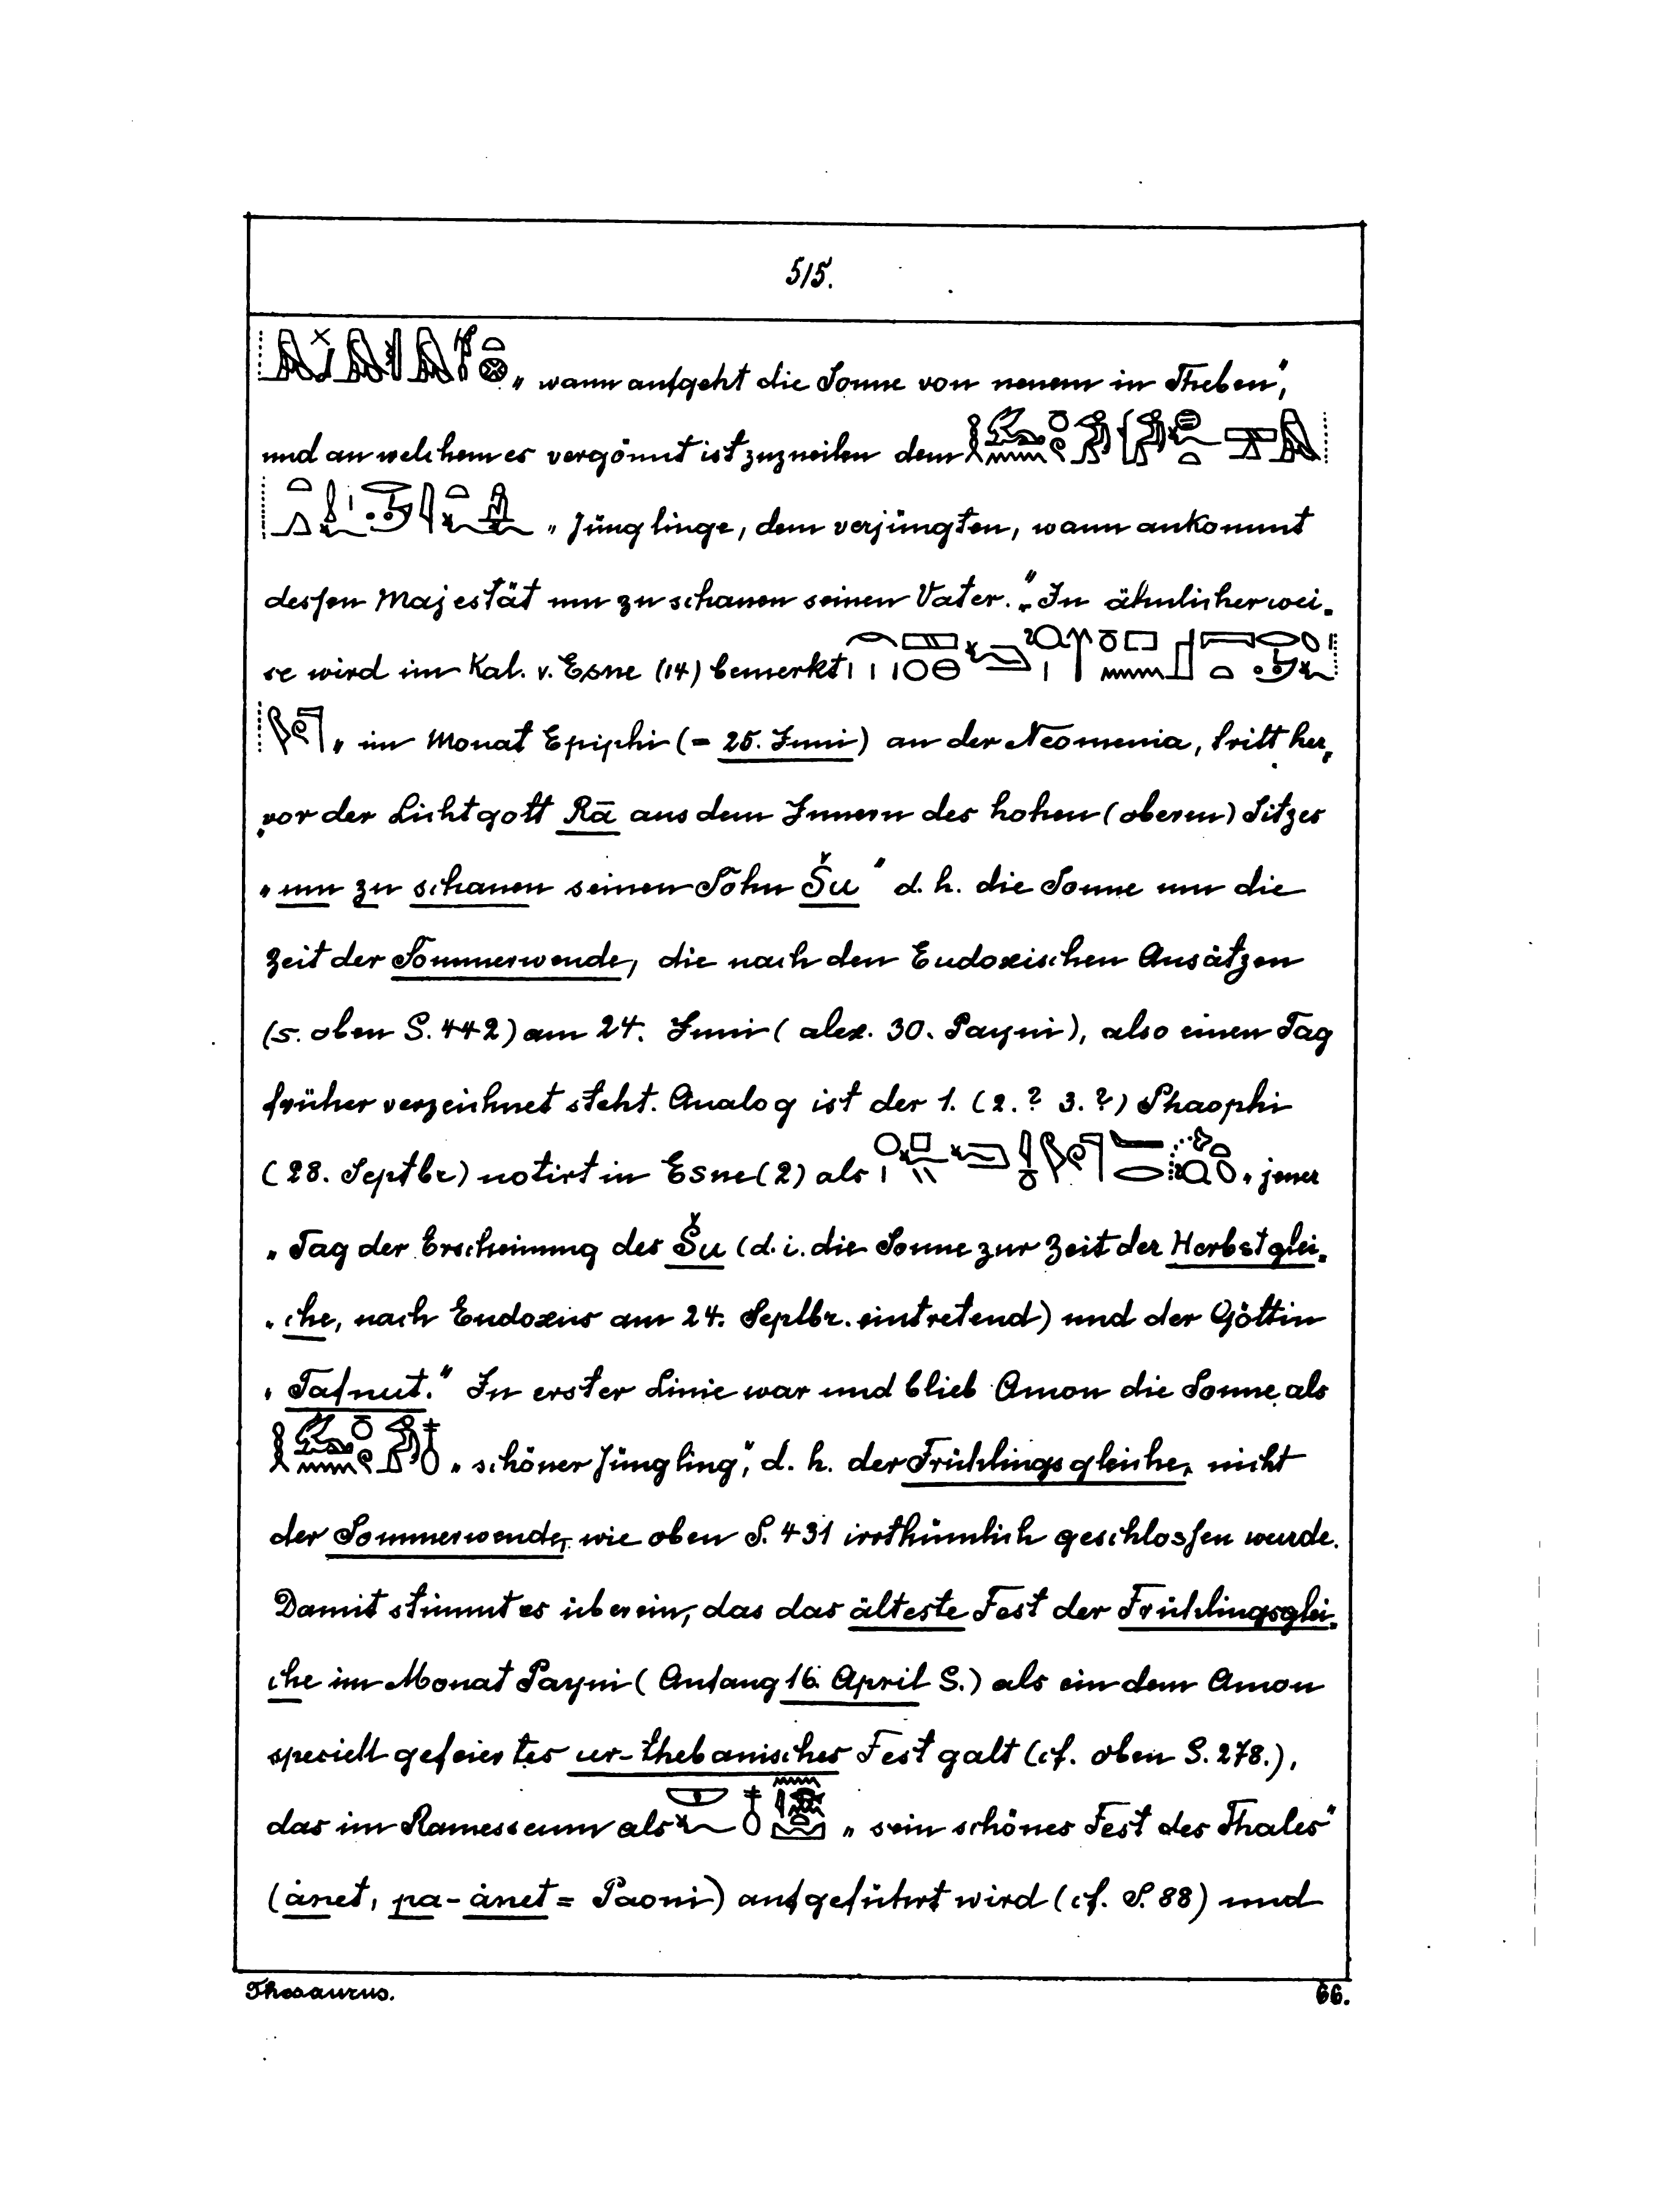 515.
„wann aufgeht die Sonne von neuem in Theben",
und an welchem es vergönnt ist zuzueilen dem
„Jünglinge, dem verjüngten, wann ankommt
dessen Majestät um zu schauen seinen Vater." In ähnlicher wei-
se wird im Kal. v. Esne (14) bemerkt
„im Monat Epiphi (= 25. Juni) an der Neomenia, tritt her-
„vor der Lichtgott Rā aus dem Innern des hohen (oberen) Sitzes
„um zu schauen seinen Sohn Šu" d. h. die Sonne um die
Zeit der Sommerwende, die nach den Eudoxischen Ansätzen
(s. oben S. 442) am 24. Juni (alex. 30. Payni), also einen Tag
früher verzeichnet steht. Analog ist der 1. (2.? 3.?) Phaophi
(28. Septbr) notirt in Esne (2) als „jener
„Tag der Erscheinung des Šu (d. i. die Sonne zur Zeit der Herbstglei-
„che, nach Eudoxus am 24. Septbr. eintretend) und der Göttin
„Tafnut." In erster Linie war und blieb Amon die Sonne als
„schöner Jüngling", d. h. der Frühlingsgleiche, nicht
der Sommerwende, wie oben S. 431 irrthümlich geschlossen wurde.
Damit stimmt es überein, das das älteste Fest der Frühlingsglei-
che im Monat Payni (Anfang 16. April S.) als ein dem Amon
speciell gefeiertes ur-thebanisches Fest galt (cf. oben S. 278.),
das im Ramesseum als „sein schönes Fest des Thales"
(ȧnet, pa-ȧnet = Paoni) aufgeführt wird (cf. S. 88) und
Thesaurus. 66.